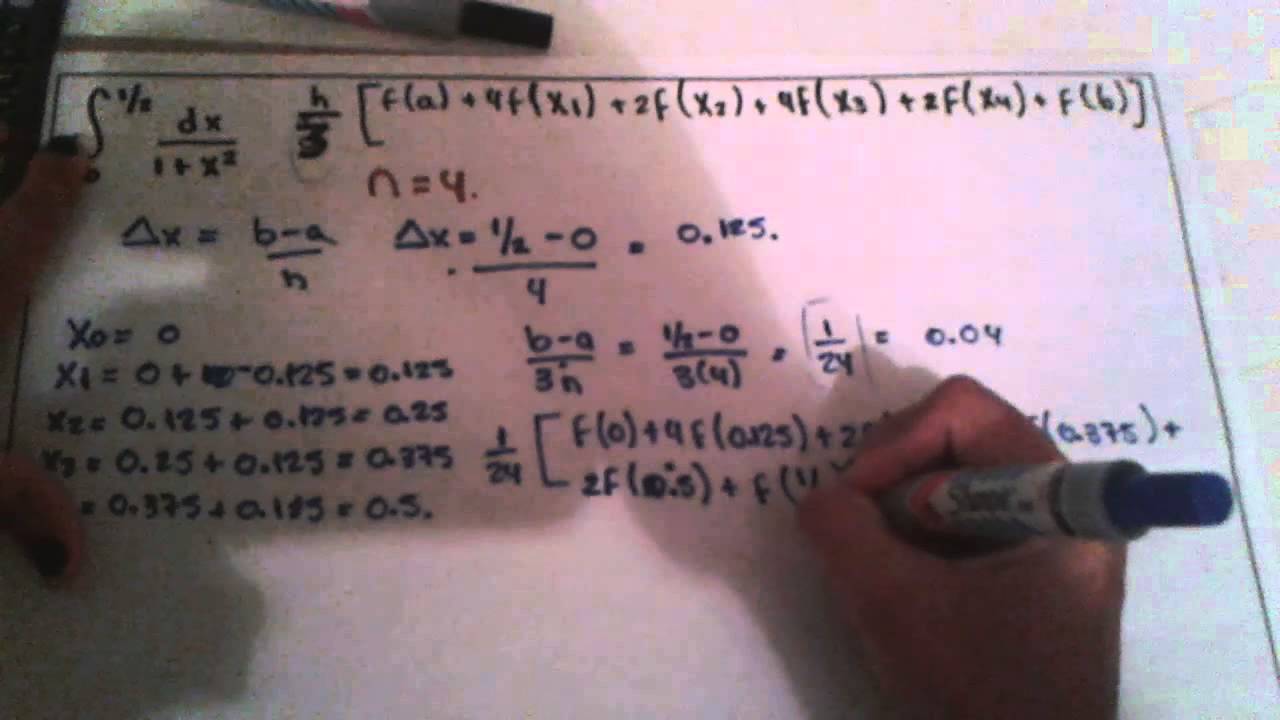 ∫₀^1/2 dx/(1+x²) h/3 [f(a) + 4f(x₁) + 2f(x₂) + 4f(x₃) + 2f(x₄) + f(b)]
n = 4.
Δx = (b-a)/n Δx = (1/2 - 0)/4 = 0.125.
X₀ = 0
X₁ = 0 + 0.125 = 0.125
X₂ = 0.125 + 0.125 = 0.25
X₃ = 0.25 + 0.125 = 0.375
= 0.375 + 0.125 = 0.5.
(b-a)/3n = (1/2-0)/3(4) = 1/24 = 0.04
1/24 [f(0) + 4f(0.125) + 2 f(0.375) +
2f(0.5) + f(1/
Sharpie